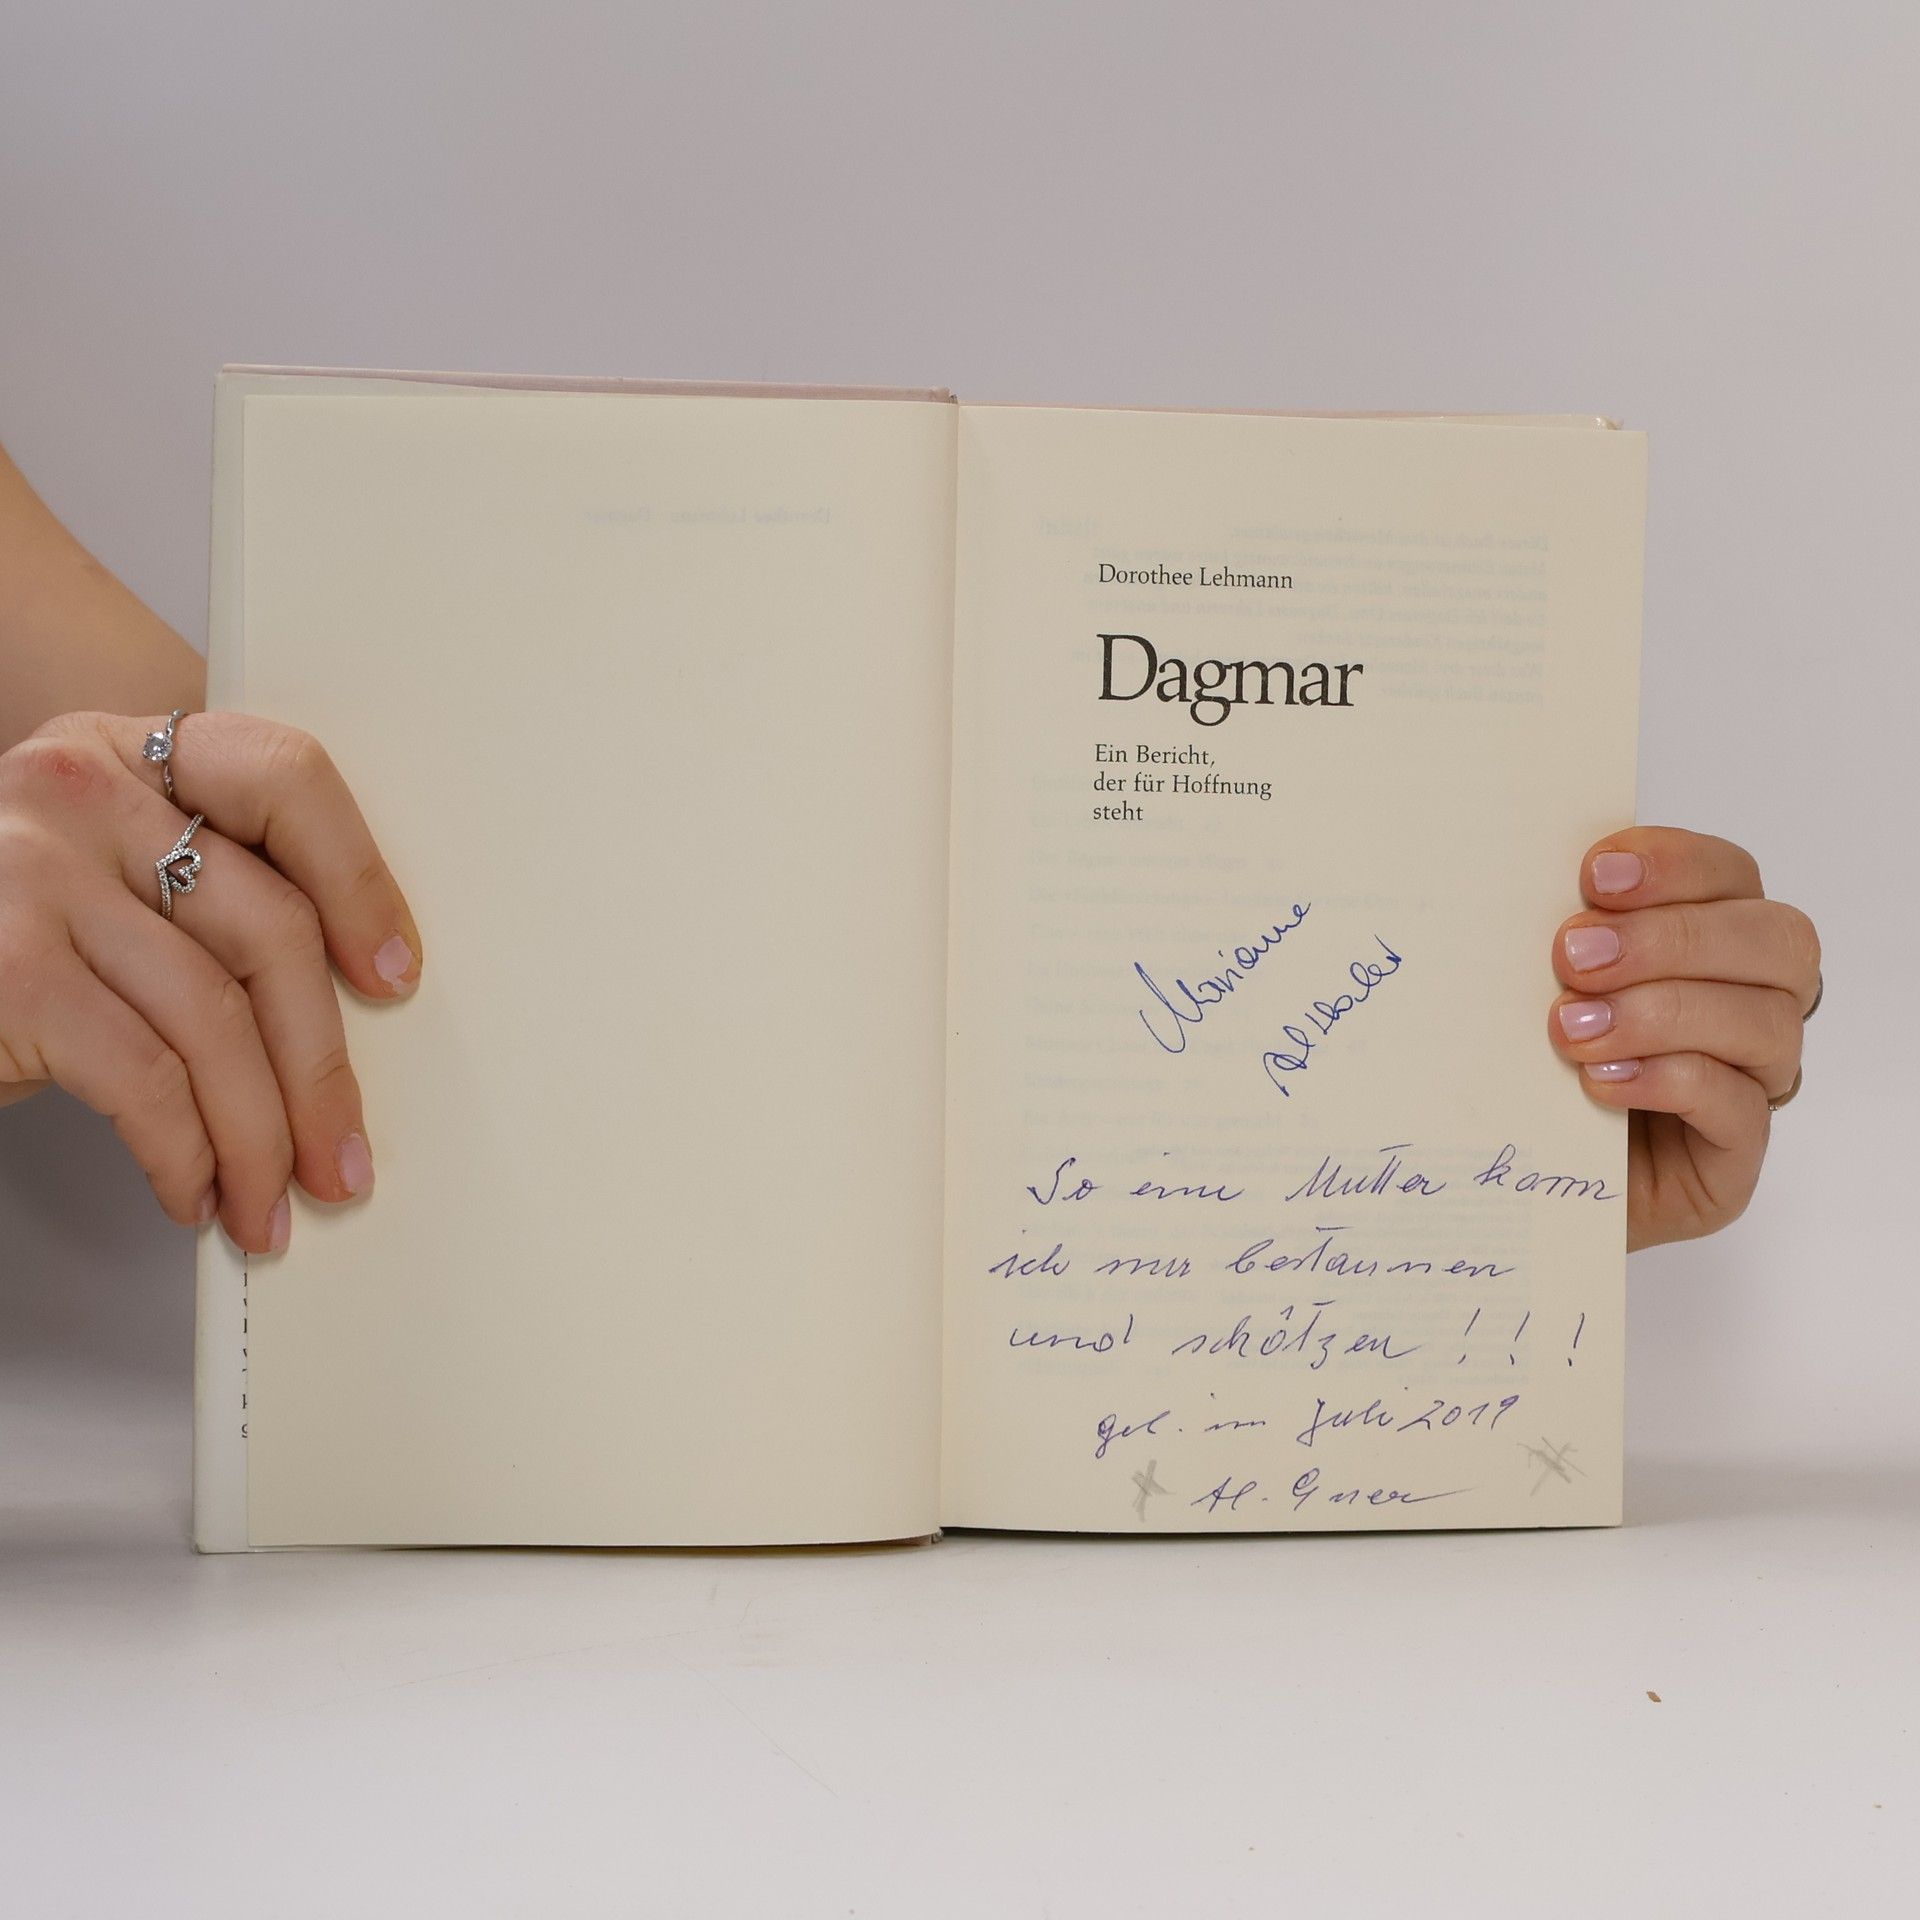 Dorothee Lehmann
Dagmar
Ein Bericht,
der für Hoffnung
steht
Marianne
So eine Mutter kann
ich nur bestaunen
und schätzen ! ! !
gel. im Juli 2019